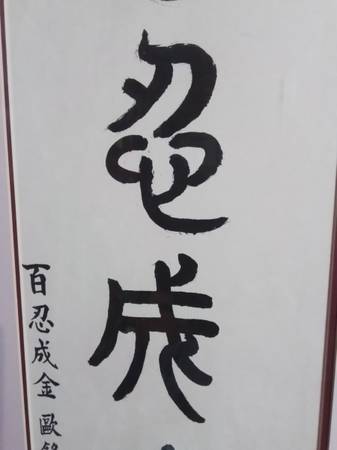 忍成
百忍成金 歐